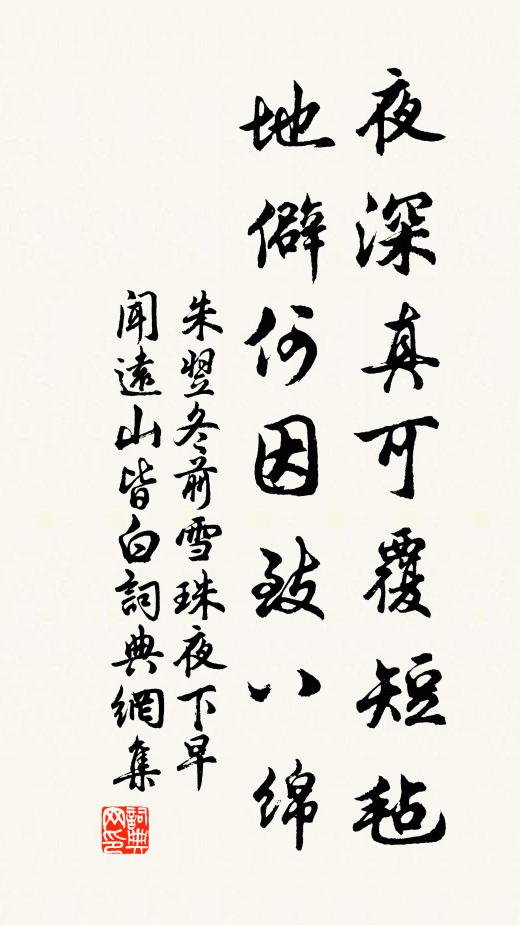 夜深真可覆短毡
地僻何因致八绵
朱翌冬前雪珠夜下早
闻遠山皆白詞典網集
詞典網印